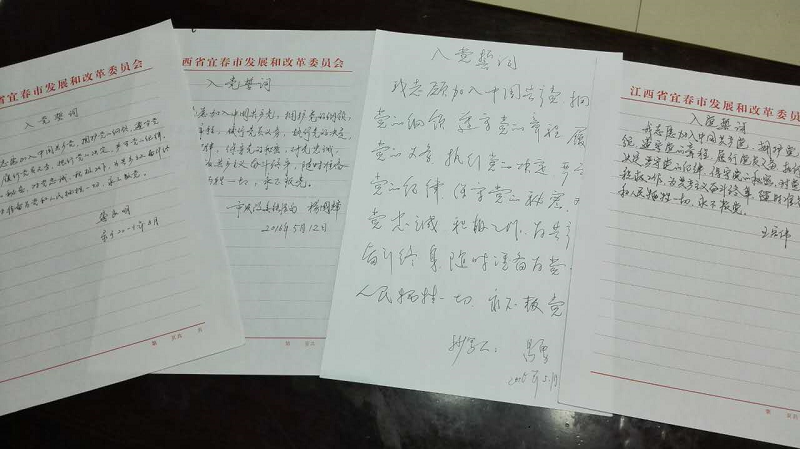 省宜春市发展和改革委员会
入党誓词
我志愿加入中国共产党，拥护党的纲领，遵守党
履行党员义务，执行党的决定，严守党的纪律，
对党忠诚，积极工作，为共产主义奋斗终
人民牺牲一切，永不叛党。
西省宜春市发展和改革委员会
入党誓词
志愿加入中国共产党，拥护党的纲领，
章程，履行党员义务，执行党的决定，
律，保守党的秘密，对党忠诚，
为共产主义奋斗终身，随时准备
牺牲一切，永不叛党。
2016年5月12日
入党誓词
我志愿加入中国共产党，拥
党的纲领 遵守党的章程 履
党员义务，执行党的决定 严守
党的纪律 保守党的秘密，
党忠诚 积极工作，为共产
奋斗终身 随时准备为党
人民牺牲一切 永不叛党
抄写人：
江西省宜春市发展和改革委员会
入党誓词
我志愿加入中国共产党，拥护党
领 遵守党的章程，履行党员义务，执行
决定，严守党的纪律，保守党的秘密，对党
积极工作，为共产主义奋斗终身，随时准备
和人民牺牲一切，永不叛党。